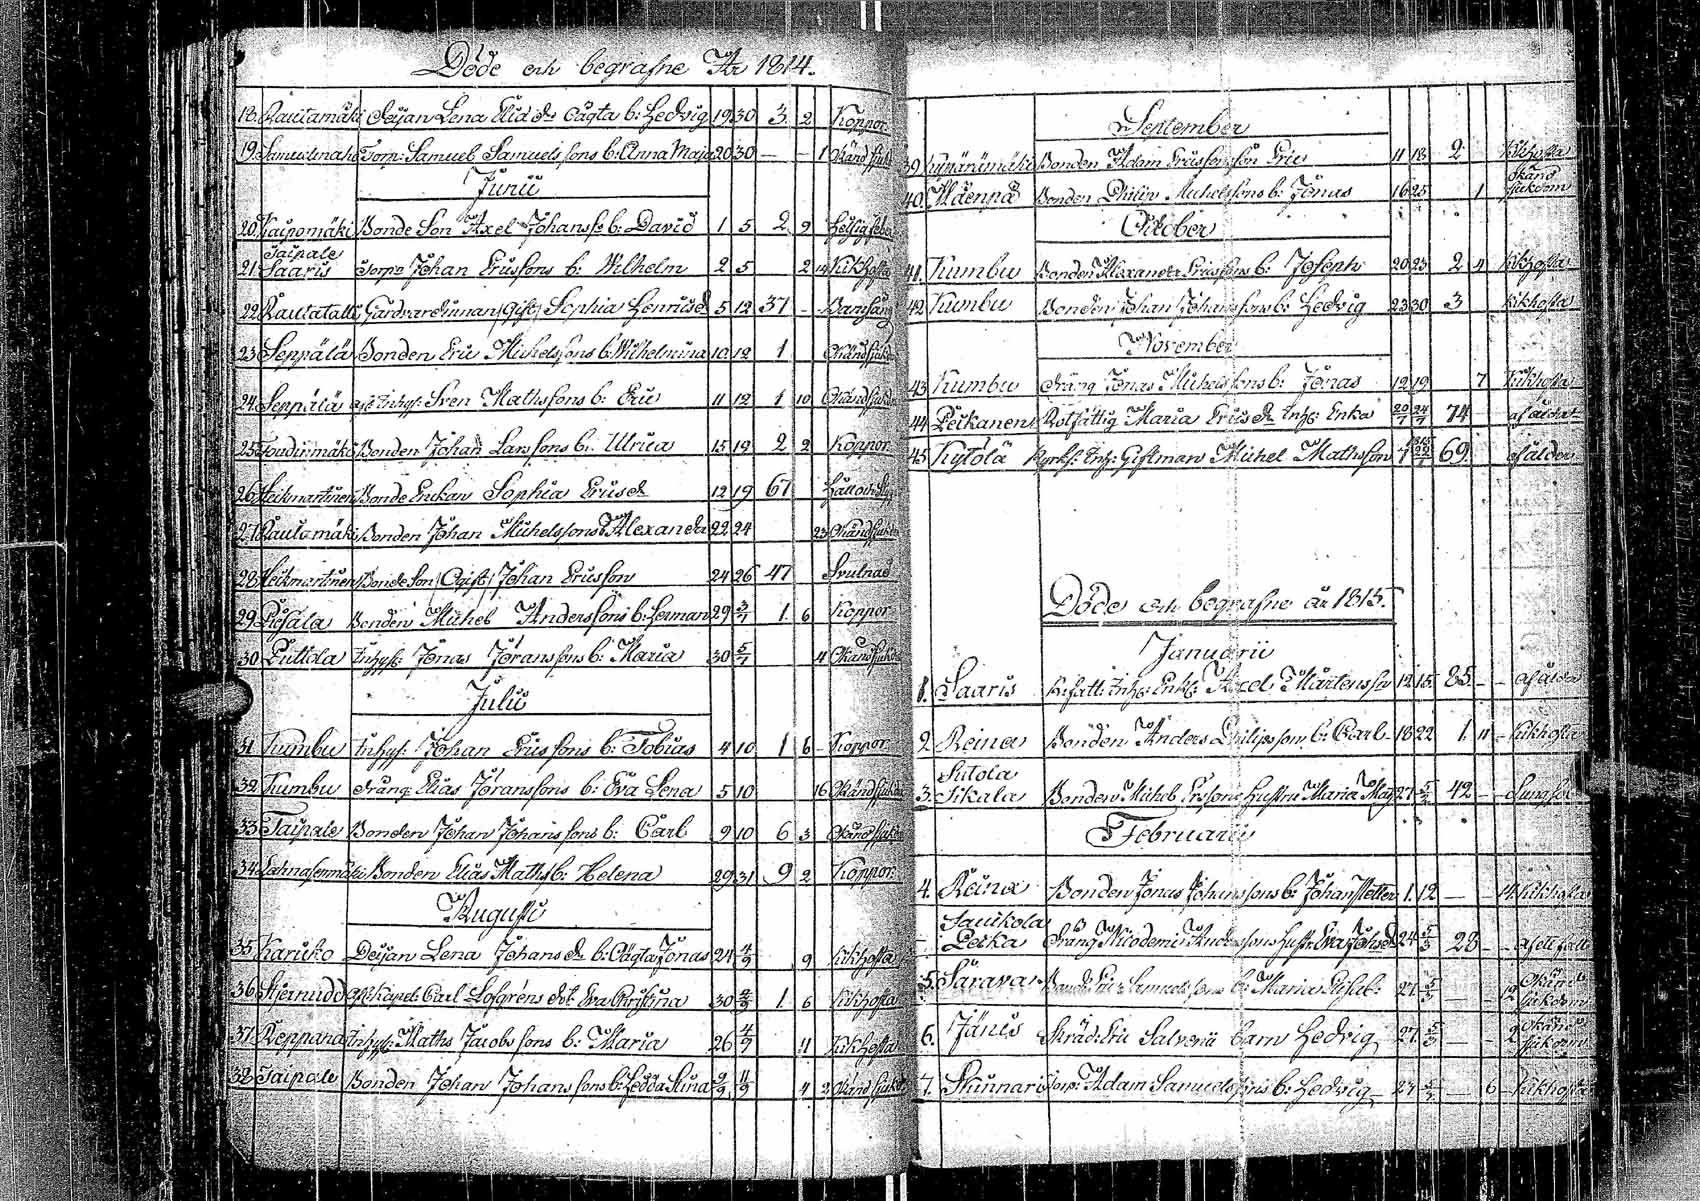 Döde och begrafne År 1814.
18. Rautamäki Pijan Lena Ericsd:r oägta b: Hedvig 19 30 3 2 Koppor
19. Torp: Samuel Samuelssons b: Anna Maja 20 30 - - 1 Okänd sjukd
Junii
20. Kaipomäki Bonde Son Axel Johanss: b: David 1 5 2 9
Taipale
21. Saaris Torp: Johan Ericssons b: Wilhelm 2 5 2 14 Kikhosta
22. Rautatalli (Gift) Sophia Henricsd 5 12 37 - - Barnsäng
23. Seppälä Bonden Eric Michelssons b: Wilhelmina 10 12 1 Okänd sjukd
24. Seppälä Inhys: Sven Mathssons b: Eric 11 12 1 10 Okänd sjukd
25. Bonden Johan Larssons b: Ulrica 15 19 2 2 Koppor
26. Heikmartinen Bonde Enckan Sophia Ericsd 12 19 67 Håll och Styng
27. Rautamäki Bonden Johan Michelssons b: Alexandra 22 24 23 Okänd sjukd
28. Heikmartinen Bonde Son (Ogift) Johan Ericsson 24 26 47 Svulnad
29. Bonden Michel Anderssons b: Herman 29 3/7 1 6 Koppor
30. Puttola Inhys: Jonas Jöranssons b: Maria 30 5/7 4 Okänd sjukd
Julii
31. Kumbu Inhys: Johan Ericssons b: Tobias 4 10 1 6 - Koppor
32. Kumbu Dräng Elias Jöranssons b: Eva Lena 5 10 16 Okänd sjukd
33. Taipale Bonden Johan Johanssons b: Carl 9 10 6 3 Okänd sjukd
34. Bonden Elias Maths: b: Helena 29 31 9 2 Koppor
Augusti
35. Karikko Deijan Lena Johansd:r b: Oägta Jonas 24 4/9 9 Kikhosta
36. Carl Löfgréns d:r Eva Christina 30 1 6 Kikhosta
37. Reppana Inhys: Maths Jacobssons b: Maria 26 4/9 11 Kikhosta
38. Taipale Bonden Johan Johanssons b: Hedda Stina 11/9 4 2 Okänd sjukd
September
39. Bonden Adam Ericssons son Eric 11 18 2 Kikhosta
40. Mäenpä Bonden Philip Michelssons b: Jonas 16 25 1 Okänd sjukdom
October
41. Kumbu Bonden Alexander Ericssons b: Joseph 20 23 2 4 Kikhosta
42. Kumbu Bonden Johan Johanssons b: Hedvig 23 30 3 Kikhosta
November
43. Kumbu Dräng Jonas Michelssons b: Jonas 12 19 7 Kikhosta
44. Peikanen Rotfattig Maria Ericsd:r Inhs: Enka 74 af ålder
45. Kytölä Inh: Giftman Michel Mathsson 69 af ålder
Döde och begrafne år 1815.
Januarii
1. Saaris Inhs: Enkl: Axel Mårtensson 12 15 85 - - af ålder
2. Reina Bonden Anders Philipssons b: Carl 18 22 1 11 - Kikhosta
Sutola
3. Sikala Bonden Michel Erssons hustru Maria 27 5/2 42 - -
Februarii
4. Reina Bonden Jonas Johanssons b: Johan Petter 1 12 - 14 Kikhosta
Saukola
- Pecka Dräng Nicodemi Anderssons hustr: Eva Johsd 24 5/3 28 - -
5. Säravar Samuelssons b: Maria Elisab: 27 5/3 - - 12 Okänd sjukdom
6. Jänis Skräd: Eric Salvenii barn Hedvig 27 5/3 - - 9 Okänd sjukdom
7. Skinnari Torp: Adam Samuelssons b: Hedvig 27 - 6 - Kikhosta